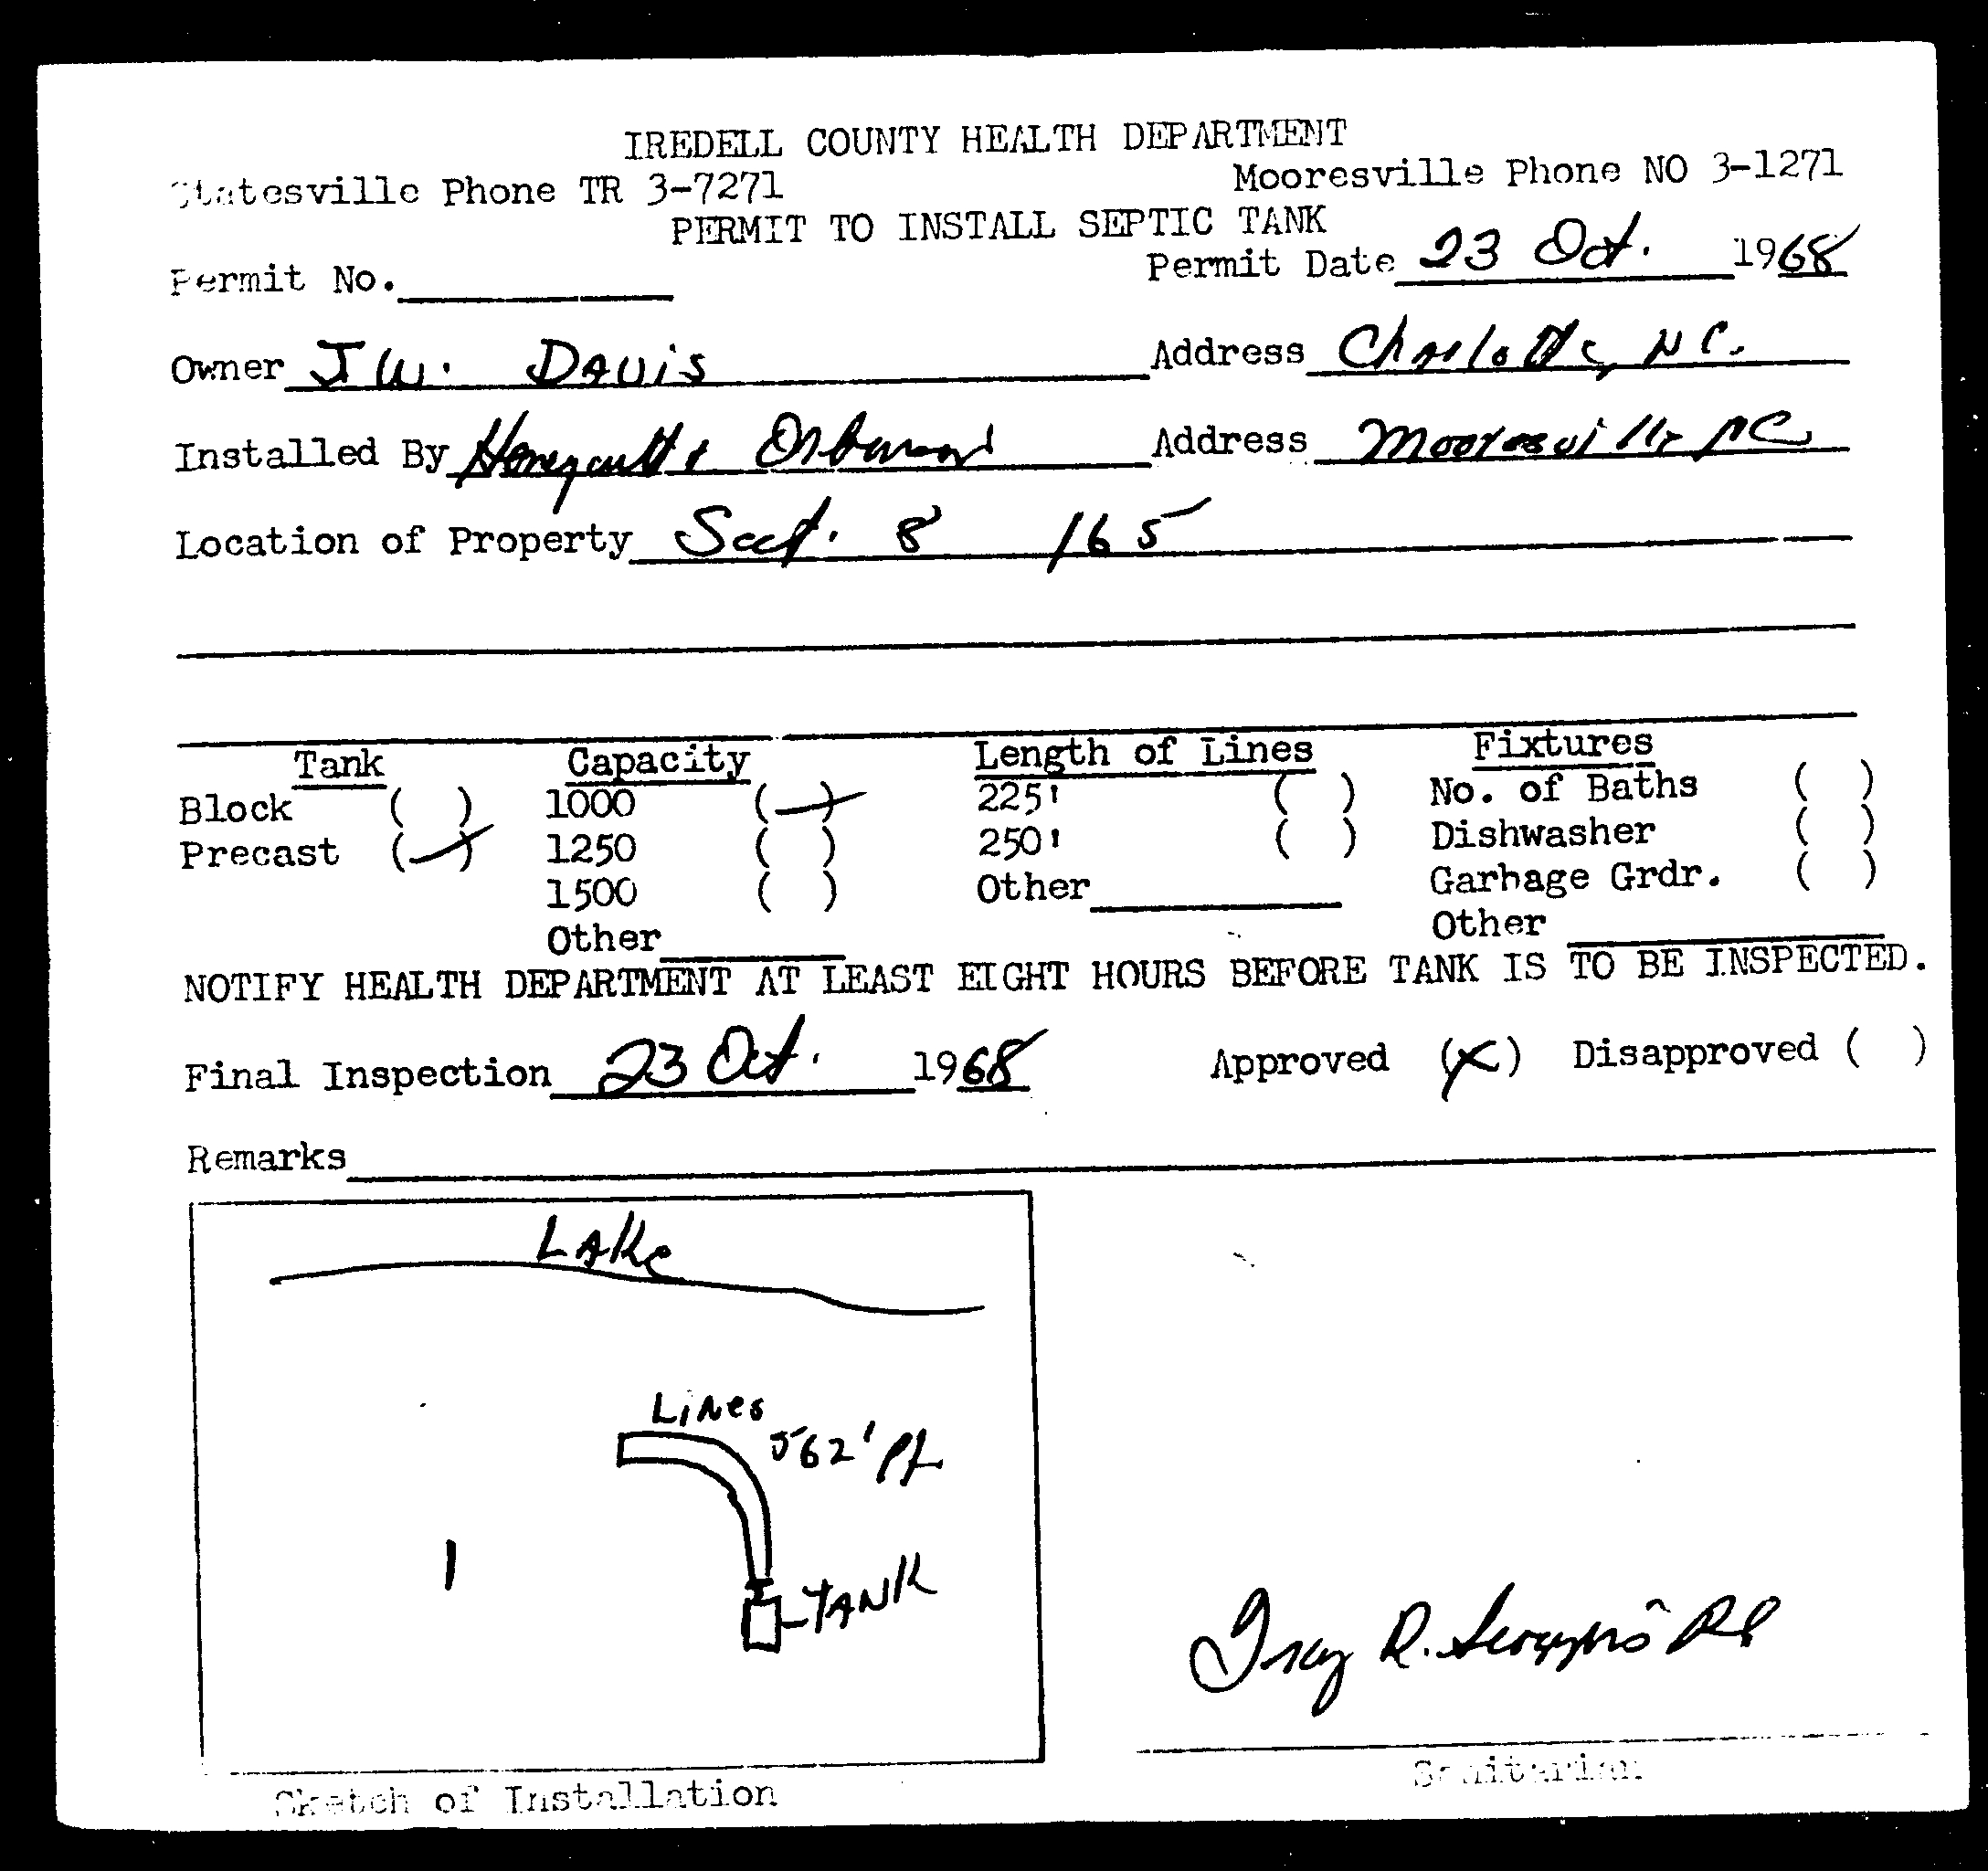 IREDELL COUNTY HEALTH DEPARTMENT
Statesville Phone TR 3-7271 Mooresville Phone NO 3-1271
PERMIT TO INSTALL SEPTIC TANK
Permit No. Permit Date 23 Oct. 1968
Owner J W. Davis Address Charlotte, N C.
Installed By Honeycutt & Address Mooresville NC
Location of Property Sect. 8 165
Tank Capacity Length of Lines Fixtures
Block ( ) 1000 (✓) 225' ( ) No. of Baths ( )
Precast (✓) 1250 ( ) 250' ( ) Dishwasher ( )
1500 ( ) Other Garbage Grdr. ( )
Other Other
NOTIFY HEALTH DEPARTMENT AT LEAST EIGHT HOURS BEFORE TANK IS TO BE INSPECTED.
Final Inspection 23 Oct. 1968 Approved (X) Disapproved ( )
Remarks
LAKe
LiNes
562' PL
TANK
R.
Sketch of Installation Sanitarian